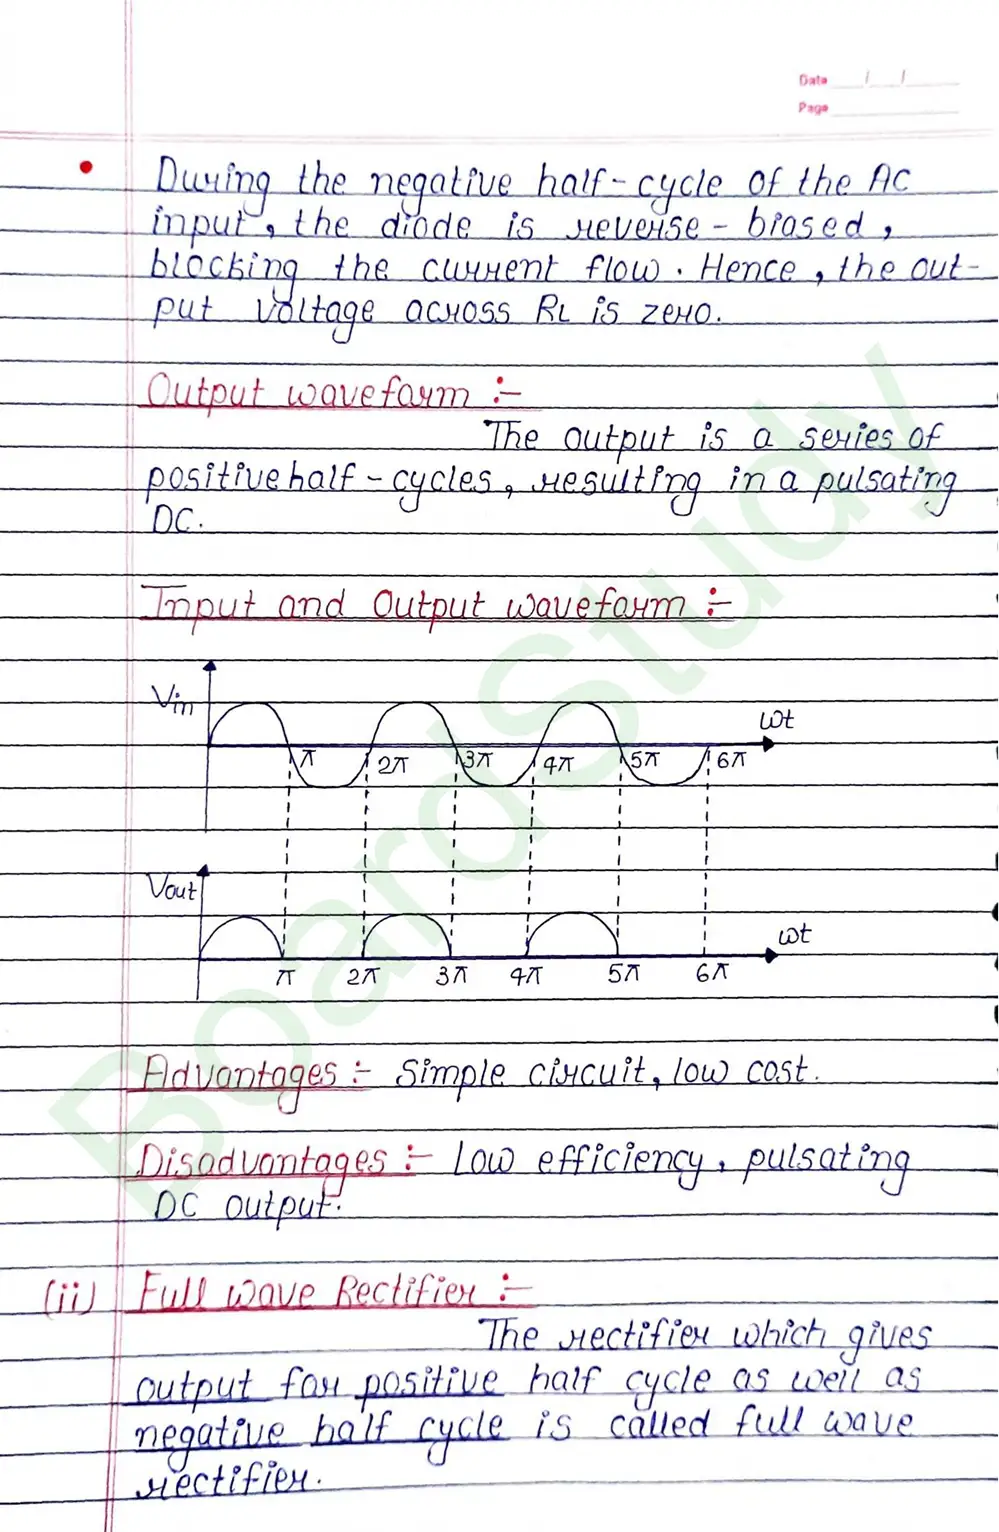 Date / /
Page
• During the negative half-cycle of the AC
input, the diode is reverse-biased,
blocking the current flow. Hence, the out-
put voltage across RL is zero.
Output waveform :-
The output is a series of
positive half-cycles, resulting in a pulsating
DC.
Input and Output waveform :-
Vin
ωt
π 2π 3π 4π 5π 6π
Vout
ωt
π 2π 3π 4π 5π 6π
Advantages :- Simple circuit, low cost.
Disadvantages :- Low efficiency, pulsating
DC output.
(ii) Full wave Rectifier :-
The rectifier which gives
output for positive half cycle as well as
negative half cycle is called full wave
rectifier.
BoardStudy